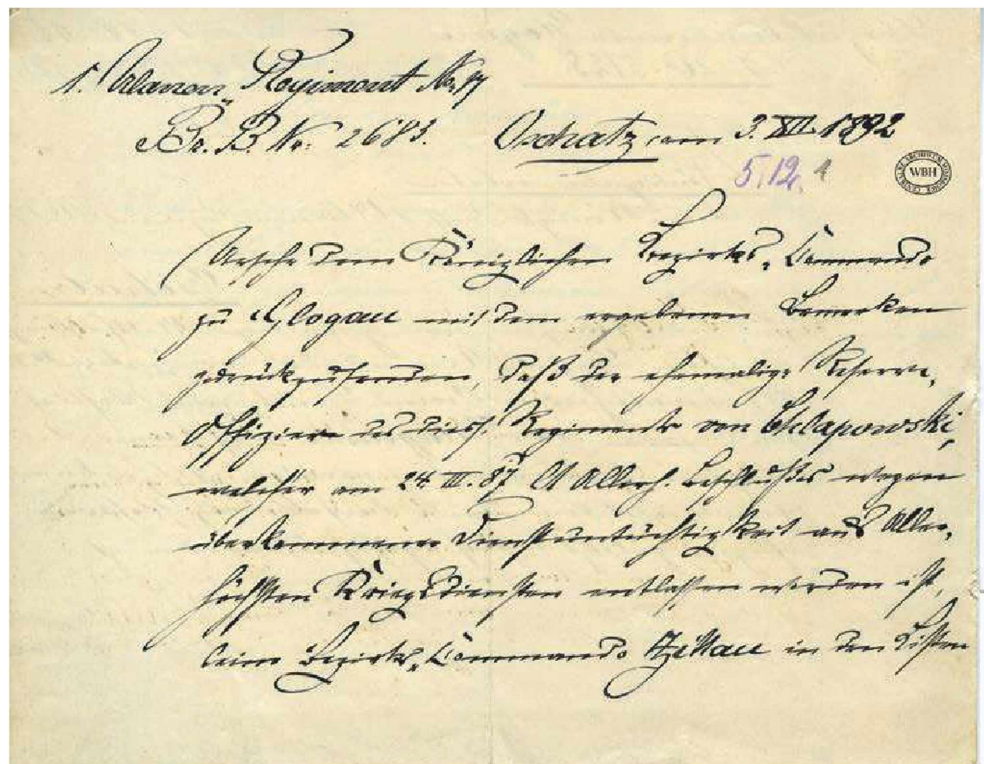 1. Ulanen-Regiment No. 17
Br. B. Nr. 2683. Oschatz, am 3. XII. 1892
5/12. 1
WBH
dem Königlichen Bezirks-Commando
zu Glogau mit dem ergebenen Bemerken
zurückzusenden, daß der ehemalige Reserve-
Offizier des diess. Regiments von Chlapowski,
welcher am 24. III. 87 Allerh. Beschlußes wegen
überkommener Dienstuntüchtigkeit aus Aller-
höchsten Kriegsdiensten entlassen worden ist,
beim Bezirks-Commando Zittau in den Listen